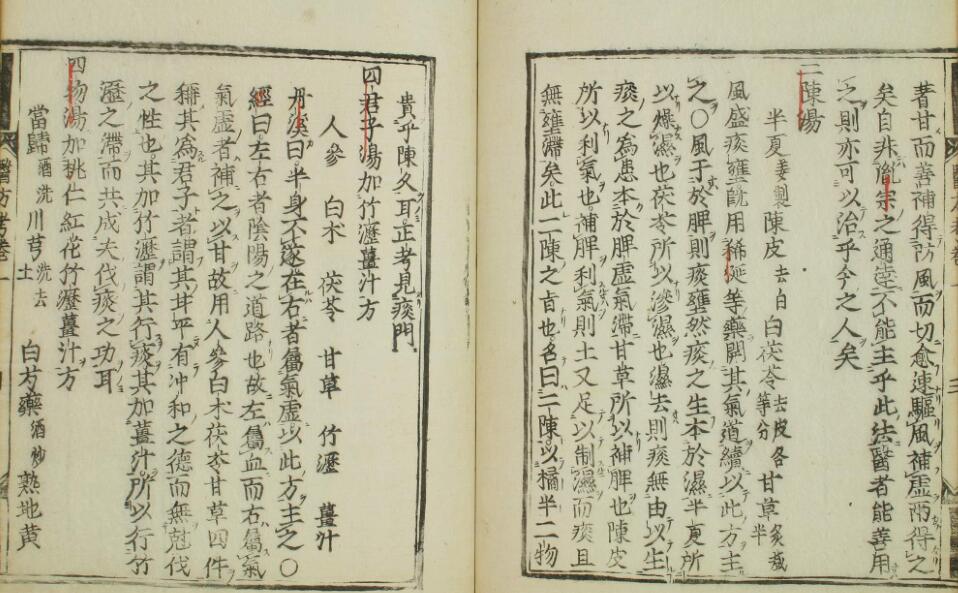 耆甘而善補得防風而功愈速驅風補虛兩得之
矣自非胤宗之通達不能主乎此法醫者能善用
之則亦可以治乎今之人矣
二陳湯
半夏姜製陳皮去白白茯苓去皮各等分甘草炙減半
風盛痰壅既用稀涎等藥開其氣道續以此方主
之○風于於脾則痰壅然痰之生本於濕半夏所
以燥濕也茯苓所以滲濕也濕去則痰無由以生
痰之為患本於脾虛氣滯甘草所以補脾也陳皮
所以利氣也補脾利氣則土又足以制濕而痰且
無壅滯矣此二陳之旨也名曰二陳以橘半二物
貴乎陳久耳正考見痰門
四君子湯加竹瀝薑汁方
人參 白朮 茯苓 甘草 竹瀝 薑汁
丹溪曰半身不遂在右者屬氣虛以此方主之○
經曰左右者陰陽之道路也故左屬血而右屬氣
氣虛者補之以甘故用人參白朮茯苓甘草四件
稱其為君子者謂其甘平有沖和之德而無尅伐
之性也其加竹瀝謂其行痰其加薑汁所以行竹
瀝之滯而共成夫伐痰之功耳
四物湯加桃仁紅花竹瀝薑汁方
當歸酒洗川芎洗去土 白芍藥酒炒 熟地黃
醫方考卷一